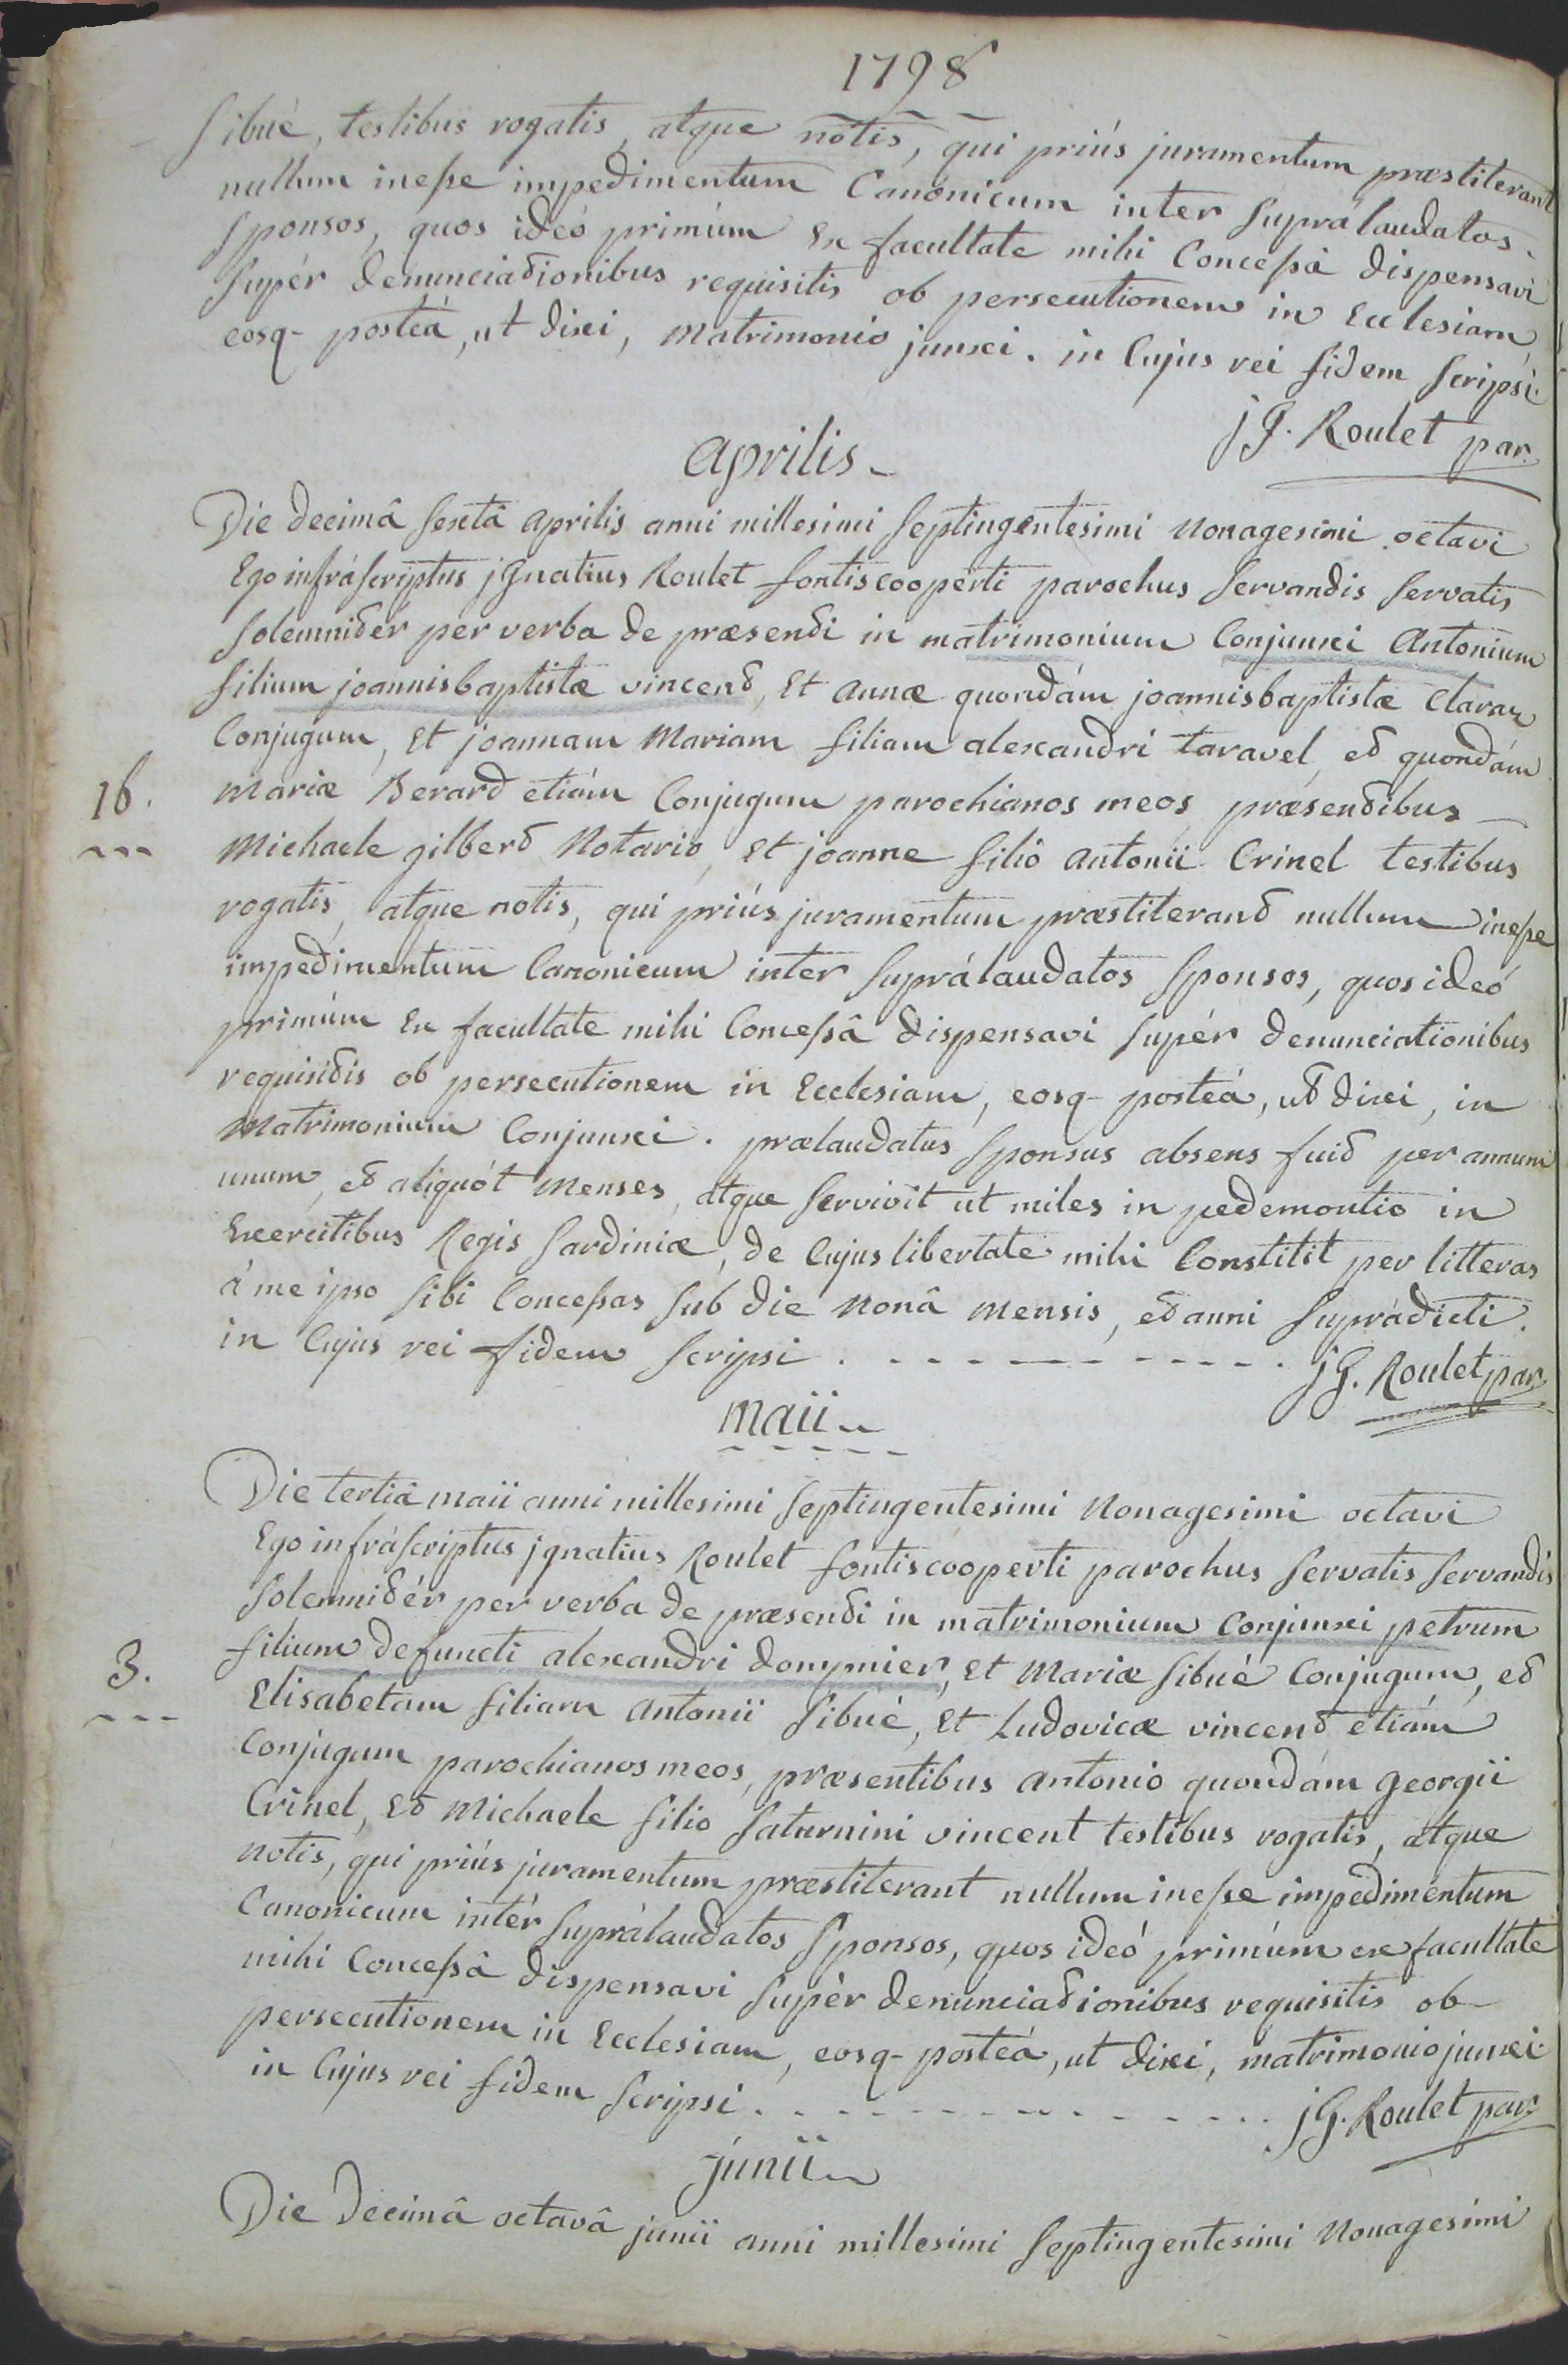 1798
Sibué, testibus rogatis, atque notis, qui priùs juramentum præstiterant
nullum inesse impedimentum Canonicum inter supràlaudatos
sponsos, quos ideò primùm Ex facultate mihi Concessâ dispensavi
supèr denunciationibus requisitis ob persecutionem in Ecclesiam,
eosq- posteà, ut dixi, matrimonio junxi. in Cujus rei fidem scripsi.
jG. Roulet par.
aprilis -
Die decimâ sextâ aprilis anni millesimi septingentesimi nonagesimi octavi
Ego infràscriptus jgnatius Roulet fontiscooperti parochus servandis servatis
solemnitèr per verba de præsenti in matrimonium Conjunxi Antonium
filium joannisbaptistæ vincent, Et annæ quondàm joannisbaptistæ Claraz
Conjugum, Et joannam Mariam filiam alexandri taravel, et quondàm
16. Mariæ Berard etiàm Conjugum parochianos meos præsentibus
Michaele gilbert Notario, Et joanne filio antonii Crinel testibus
rogatis, atque notis, qui priùs juramentum præstiterant nullum inesse
impedimentum Canonicum inter supràlaudatos sponsos, quos ideò
primùm Ex facultate mihi Concessâ dispensavi supèr denunciationibus
requisitis ob persecutionem in Ecclesiam, eosq- posteà, ut dixi, in
Matrimonium Conjunxi. prælaudatus sponsus absens fuit per annum
unum, et aliquòt menses, atque servivit ut miles in pedemontio in
Exercitibus Regis Sardiniæ, de Cujus libertate mihi Constitit per litteras
à me ipso sibi Concessas sub die nonâ mensis, et anni supràdicti.
in Cujus rei fidem scripsi . - - - - - - - - - - . jG. Roulet par.
maii -
Die tertiâ maii anni millesimi septingentesimi Nonagesimi octavi
Ego infràscriptus jgnatius Roulet fontiscooperti parochus servatis servandis
solemnitèr per verba de præsenti in matrimonium Conjunxi petrum
filium defuncti alexandri donymier, Et Mariæ Sibué Conjugum, et
3. Elisabetam filiam antonii Sibué, Et Ludovicæ vincent etiàm
Conjugum parochianos meos, præsentibus antonio quondàm georgii
Crinel, Et Michaele filio Saturnini vincent testibus rogatis, atque
notis, qui priùs juramentum præstiterant nullum inesse impedimentum
Canonicum intèr supràlaudatos sponsos, quos ideò primùm ex facultate
mihi Concessâ dispensavi supèr denunciationibus requisitis ob
persecutionem in Ecclesiam, eosq- posteà, ut dixi, matrimonio junxi.
in Cujus rei fidem scripsi . - - - - - - - - - - . jG. Roulet par.
junii -
Die decimâ octavâ junii anni millesimi septingentesimi Nonagesimi